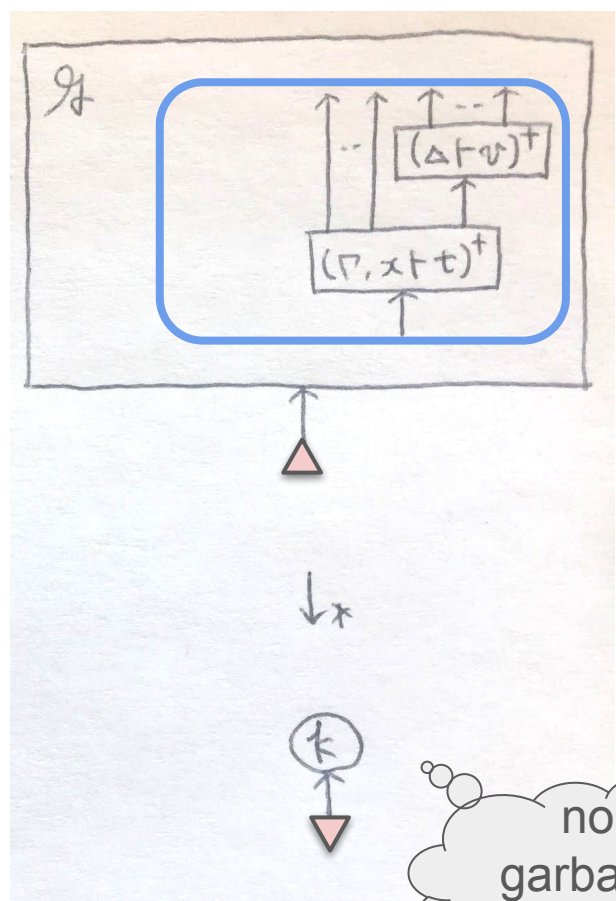 𝒢
-- --
(Δ ⊢ v)⁺
(Γ, x ⊢ t)⁺
↓*
k
no
garba